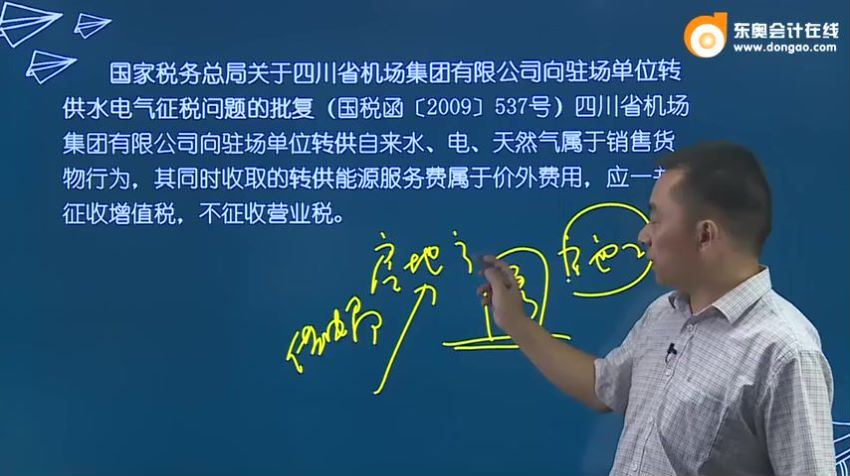 东奥会计在线
www.dongao.com
国家税务总局关于四川省机场集团有限公司向驻场单位转
供水电气征税问题的批复（国税函〔2009〕537号）四川省机场
集团有限公司向驻场单位转供自来水、电、天然气属于销售货
物行为，其同时收取的转供能源服务费属于价外费用，应一
征收增值税，不征收营业税。
房地